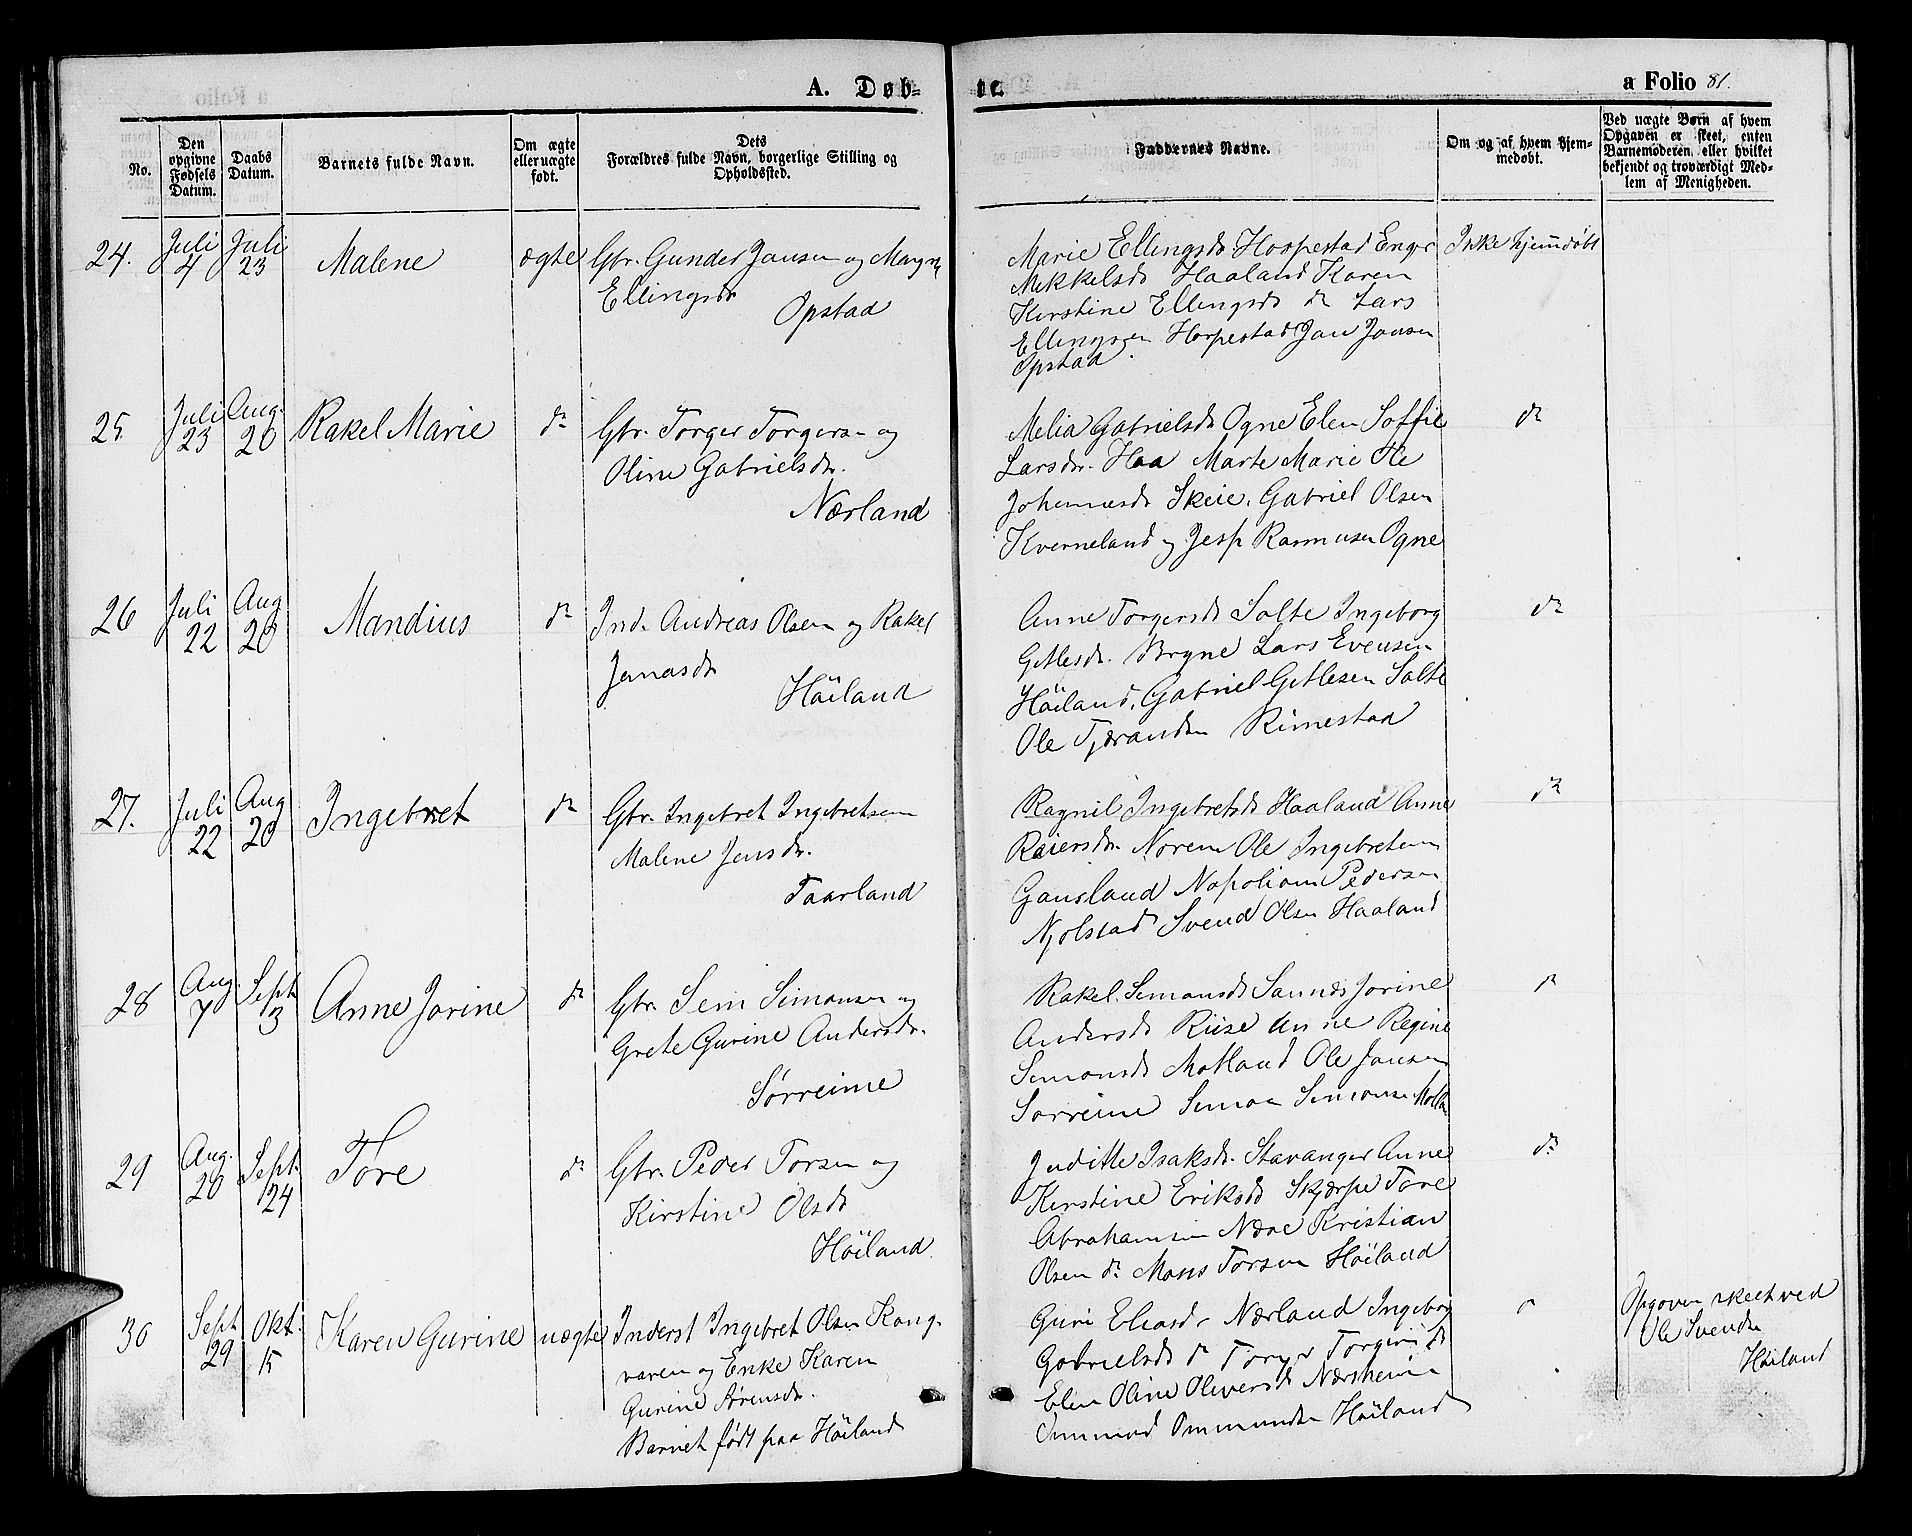 A. Døb=
te.
a Folio 81.
No.
Den opgivne Fødsels Datum.
Daabs Datum.
Barnets fulde Navn.
Om ægte eller uægte født.
Dets Forældres fulde Navn, borgerlige Stilling og Opholdssted.
Faddernes Navne.
Om og af hvem hjemmedøbt.
Ved uægte Børn af hvem Opgaven er skeet, enten Barnemoderen, eller hvilket bekjendt og troværdigt Medlem af Menigheden.
24.
Juli 4
Juli 23
Malene
ægte
Gbr. Gunder Jansen og
Ellingsdr
Opstad
Marie Ellingsdr Hospestad Enger
Mikkelsdr Haaland Karen
Kirstine Ellingsdr do Lars
Ellingsen Hospestad Jan Jansen
Opstad.
Ikke hjemdøbt
25
Juli 23
Aug. 20
Rakel Marie
do
Gbr. Torger Torgersen og
Oline Gabrielsdr.
Nærland
Melia Gabrielsdr Ogne Elen Soffie
Larsdr. Haa Marte Marie Ole
Johannesdr Skeie, Gabriel Olsen
Kverneland og Jesp Rasmusen Ogne
do
26
Juli 22
Aug 20
Mandius
do
Ind. Andreas Olsen og Rakel
Jonasdr
Höiland
Anne Torgersdr Salte Ingeborg
Gitlesdr. Bryne Lars Evensen
Höiland, Gabriel Gitlesen Salte
Ole Tjerandsen Rimestad
do
27.
Juli 22
Aug 20
Ingebret
do
Gbr. Ingebret Ingebretsen
Malene Jensdr.
Taarland
Ragnil Ingebretsdr Haaland Anne
Reiersdr. Norem Ole Ingebretsen
Gausland Napoliom Pedersen
Njolstad Svend Olsen Haaland
do
28
Aug. 7
Sept 3
Anne Jorine
do
Gbr. Sem Simonsen og
Grete Gurine Andersdr.
Sørreime
Rakel Simonsdr Sannes Jorine
Andersdr Riise Anne Regine
Simonsdr Motland Ole Jansen
Sørreime Simon Simonsen
do
29
Aug. 20
Sept. 24
Tore
do
Gbr. Peder Torsen og
Kirstine Olsdr
Höiland
Juditte Isaksdr. Stavanger Anne
Kirstine Eriksdr Skjærpe Tore
Abrahamsen Nære Kristian
Olsen do Mons Torsen Höiland
do
30
Sept 29
Okt. 15
Karen Gurine
uægte
Inderst Ingebret Olsen Kong-
varen og Enke Karen
Gurine Sørensdr.
Barnet født paa Höiland
Guri Eliasdr Nærland Ingeborg
Gabrielsdr do Torger do
Elen Oline Oliversdr Nærheim
Ommund Ommundsen Höiland
Opgaven skeet ved
Ole Svendsen
Höiland